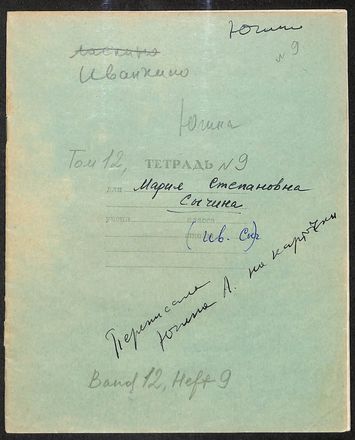 Югина
№ 9
Ласкино
Иванкино
Югина
Том 12, ТЕТРАДЬ № 9
для Мария Степановна
Сычина
учени класса
школы (Ив. Сы)
Переписала
Югина Л. на карточки
Band 12, Heft 9